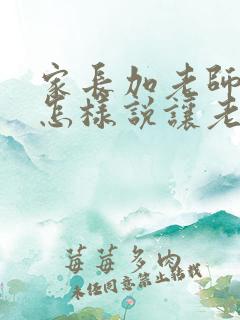 家長加老師
怎樣説讓老
莓莓多肉
未经同意禁止转载